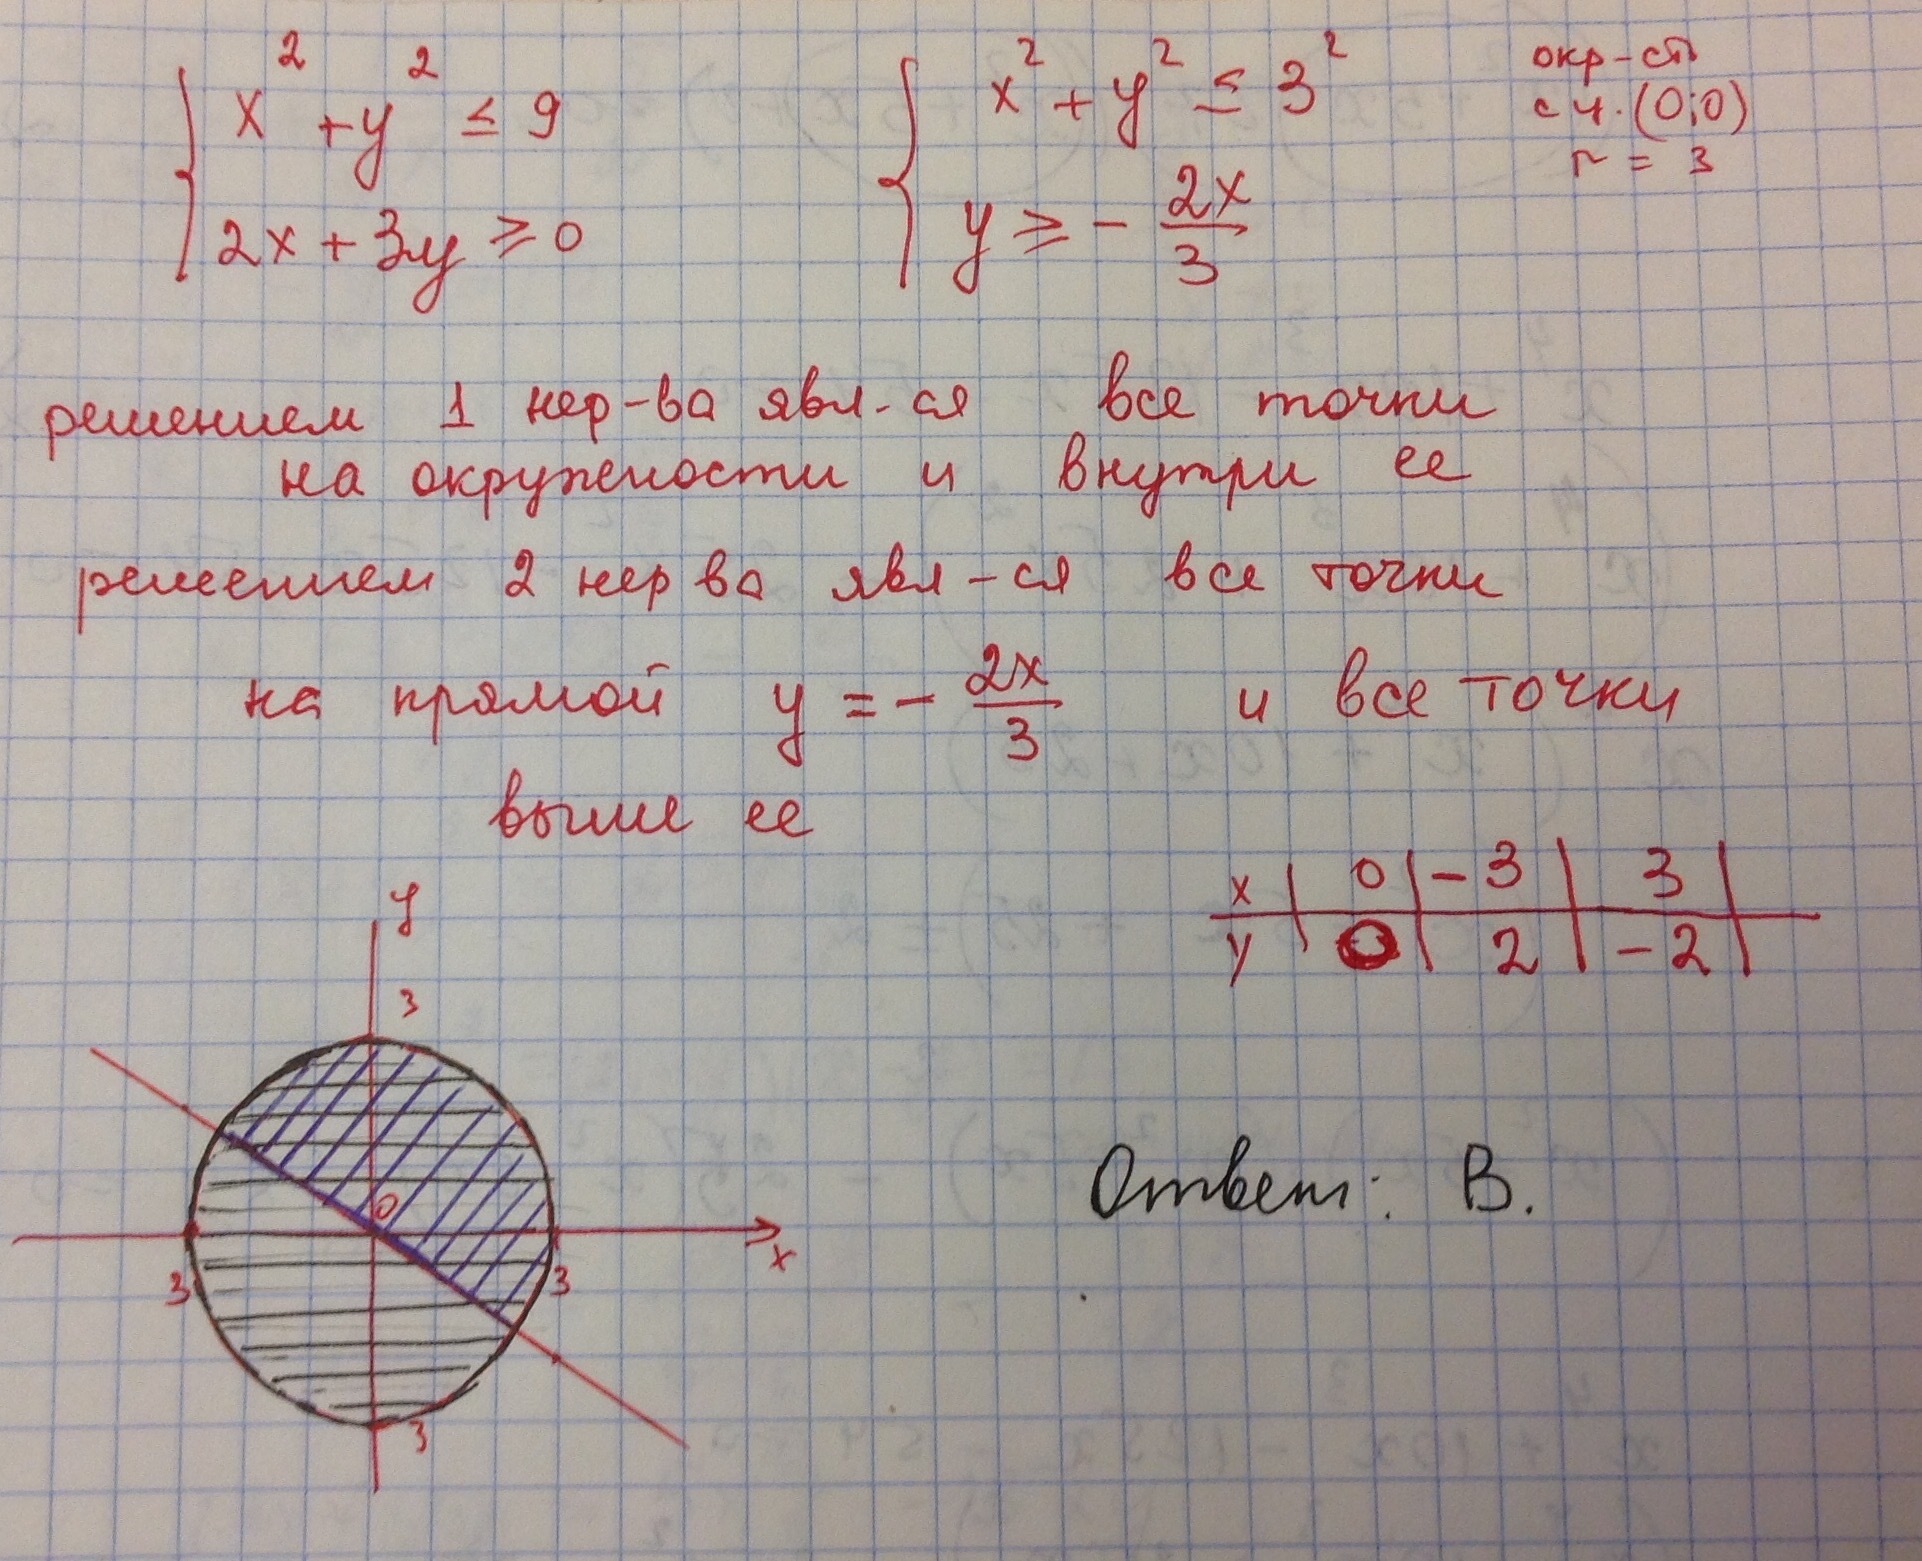 x² + y² ≤ 9
2x + 3y ≥ 0
x² + y² ≤ 3²
y ≥ - 2x/3
окр-сть
с ц. (0;0)
r = 3
решением 1 нер-ва явл-ся все точки
на окружности и внутри ее
решением 2 нер ва явл-ся все точки
на прямой y = - 2x/3 и все точки
выше ее
x | 0 | -3 | 3 |
y | 0 | 2 | -2 |
y
3
0
x
3
3
3
Ответ: В.